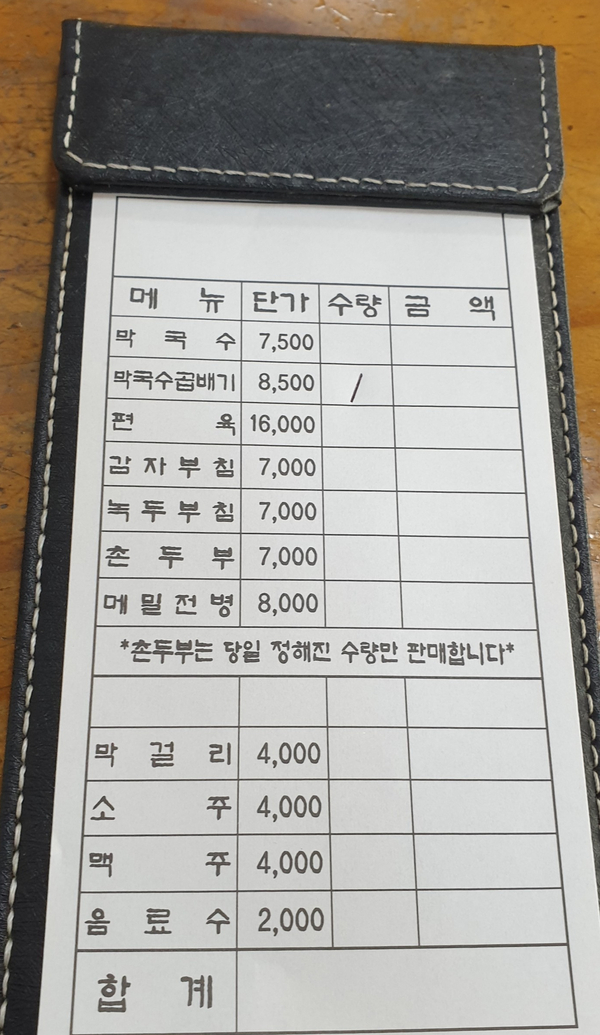 메 뉴 단가 수량 금 액
막 국 수 7,500
막국수곱배기 8,500 /
편 육 16,000
감 자 부 침 7,000
녹 두 부 침 7,000
촌 두 부 7,000
메 밀 전 병 8,000
*촌두부는 당일 정해진 수량만 판매합니다*
막 걸 리 4,000
소 주 4,000
맥 주 4,000
음 료 수 2,000
합 계